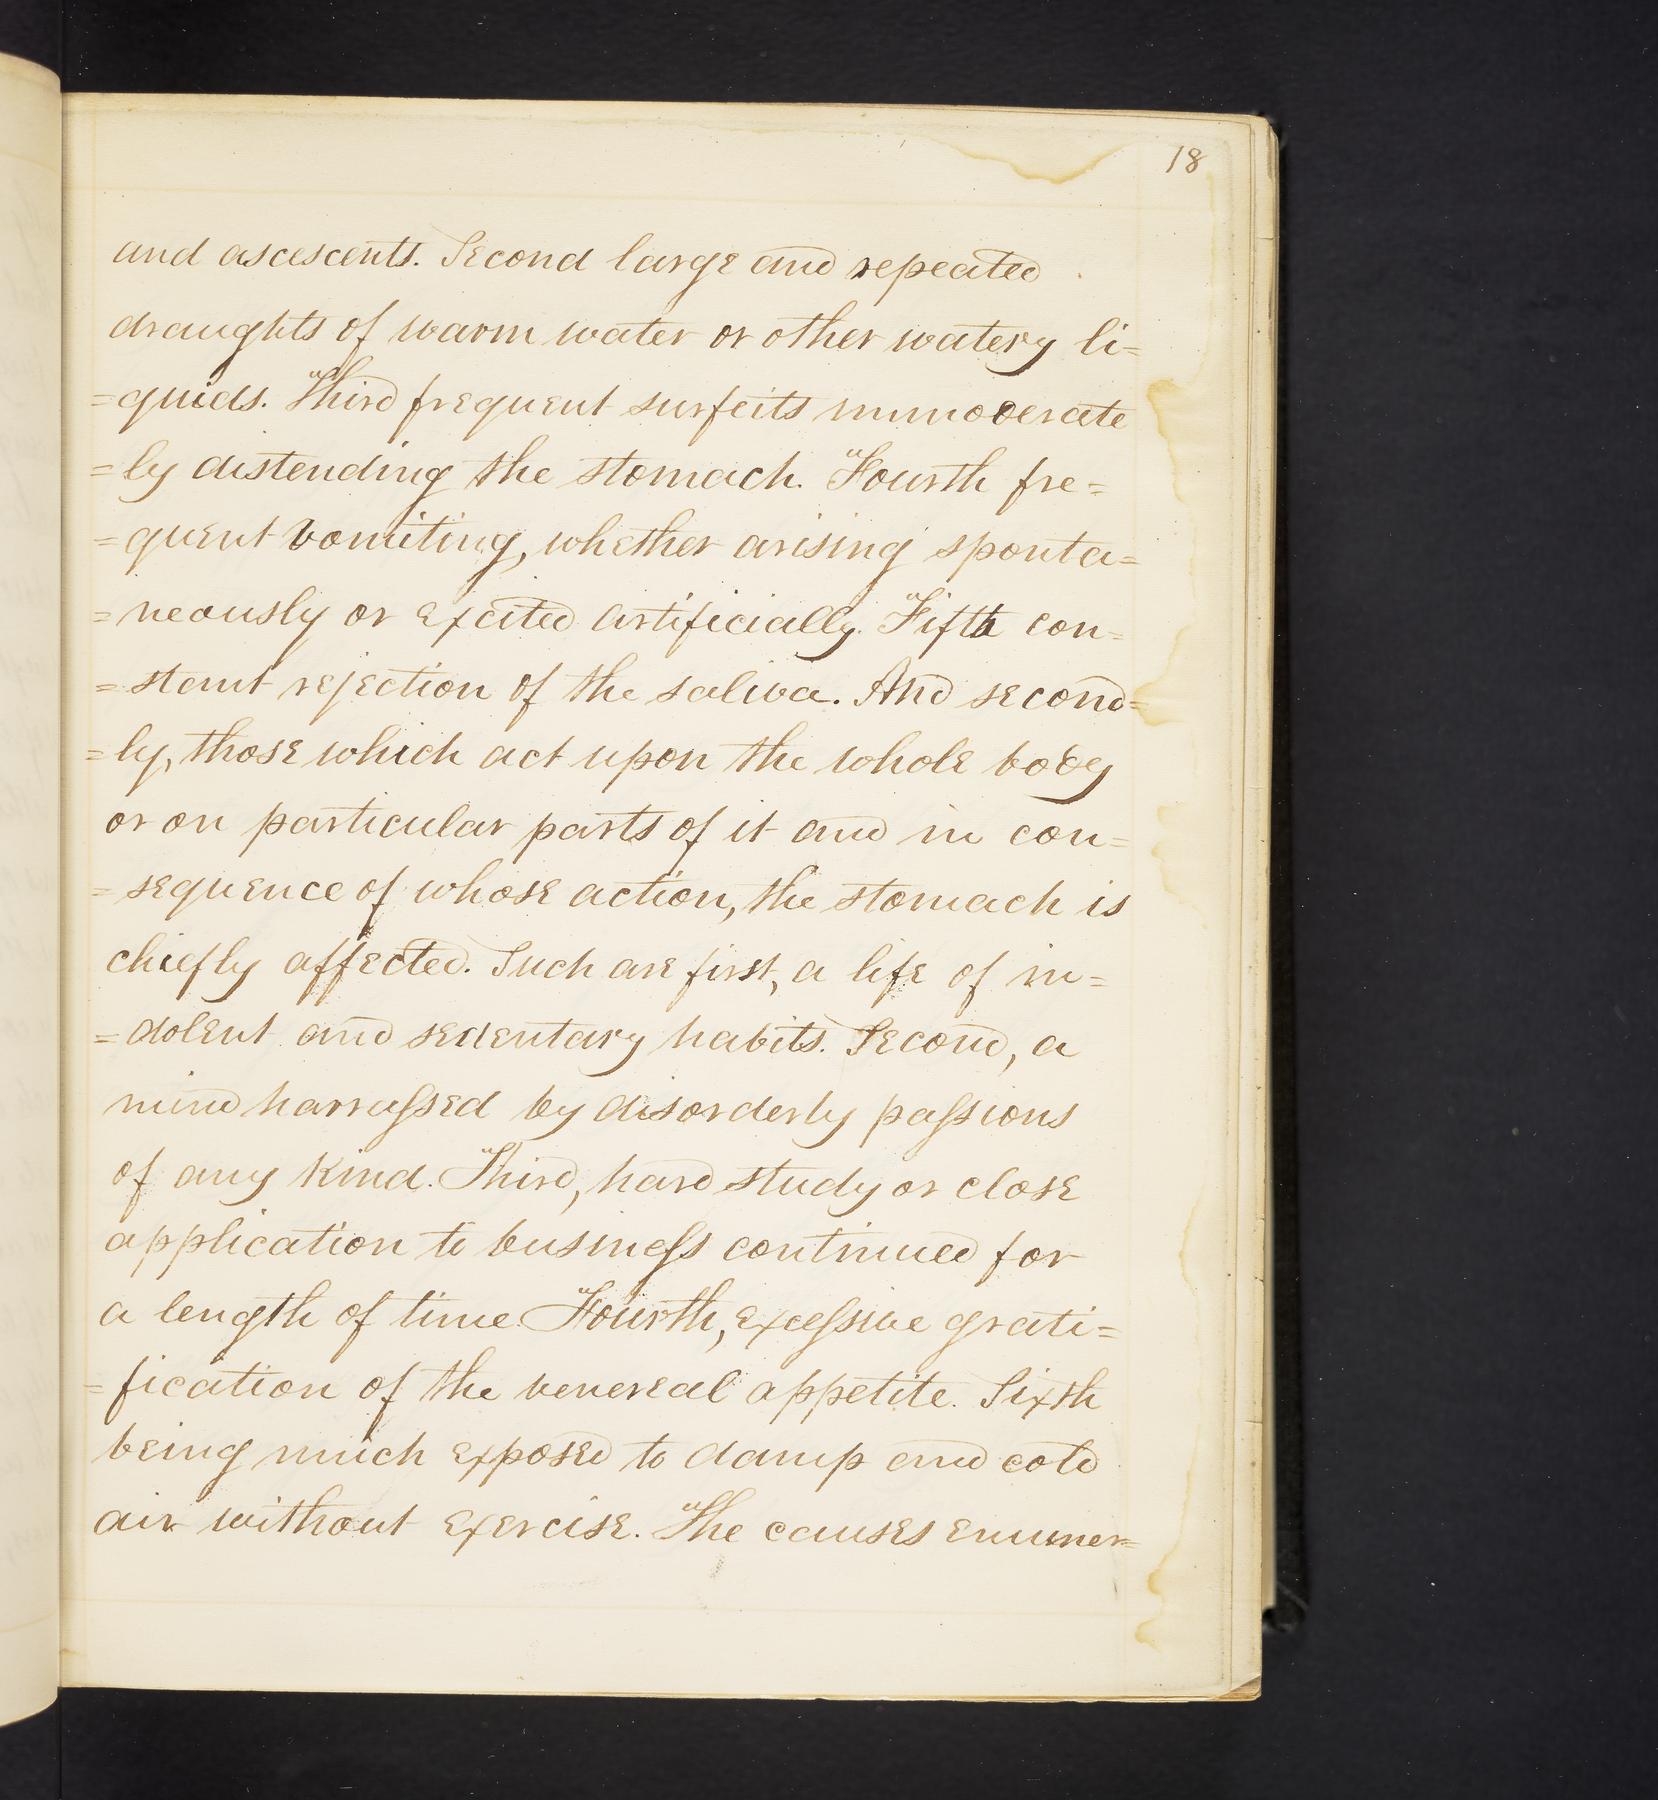 18
and ascescents. Second large and repeated
draughts of warm water or other watery li=
=quids. Third frequent surfeits immoderate
=ly distending the stomach. Fourth fre=
=quent vomiting, whether arising sponta=
=neously or excited artificially. Fifth con=
=stant rejection of the saliva. And second=
=ly, those which act upon the whole body
or on particular parts of it and in con=
=sequence of whose action, the stomach is
chiefly affected. Such are first, a life of in=
=dolent and sedentary habits. Second, a
mind harraſsed by disorderly paſsions
of any kind. Third, hard study or close
application to busineſs continued for
a length of time. Fourth, exceſsive grati=
=fication of the venereal appetite. Sixth
being much exposed to damp and cold
air without exercise. The causes enumer=